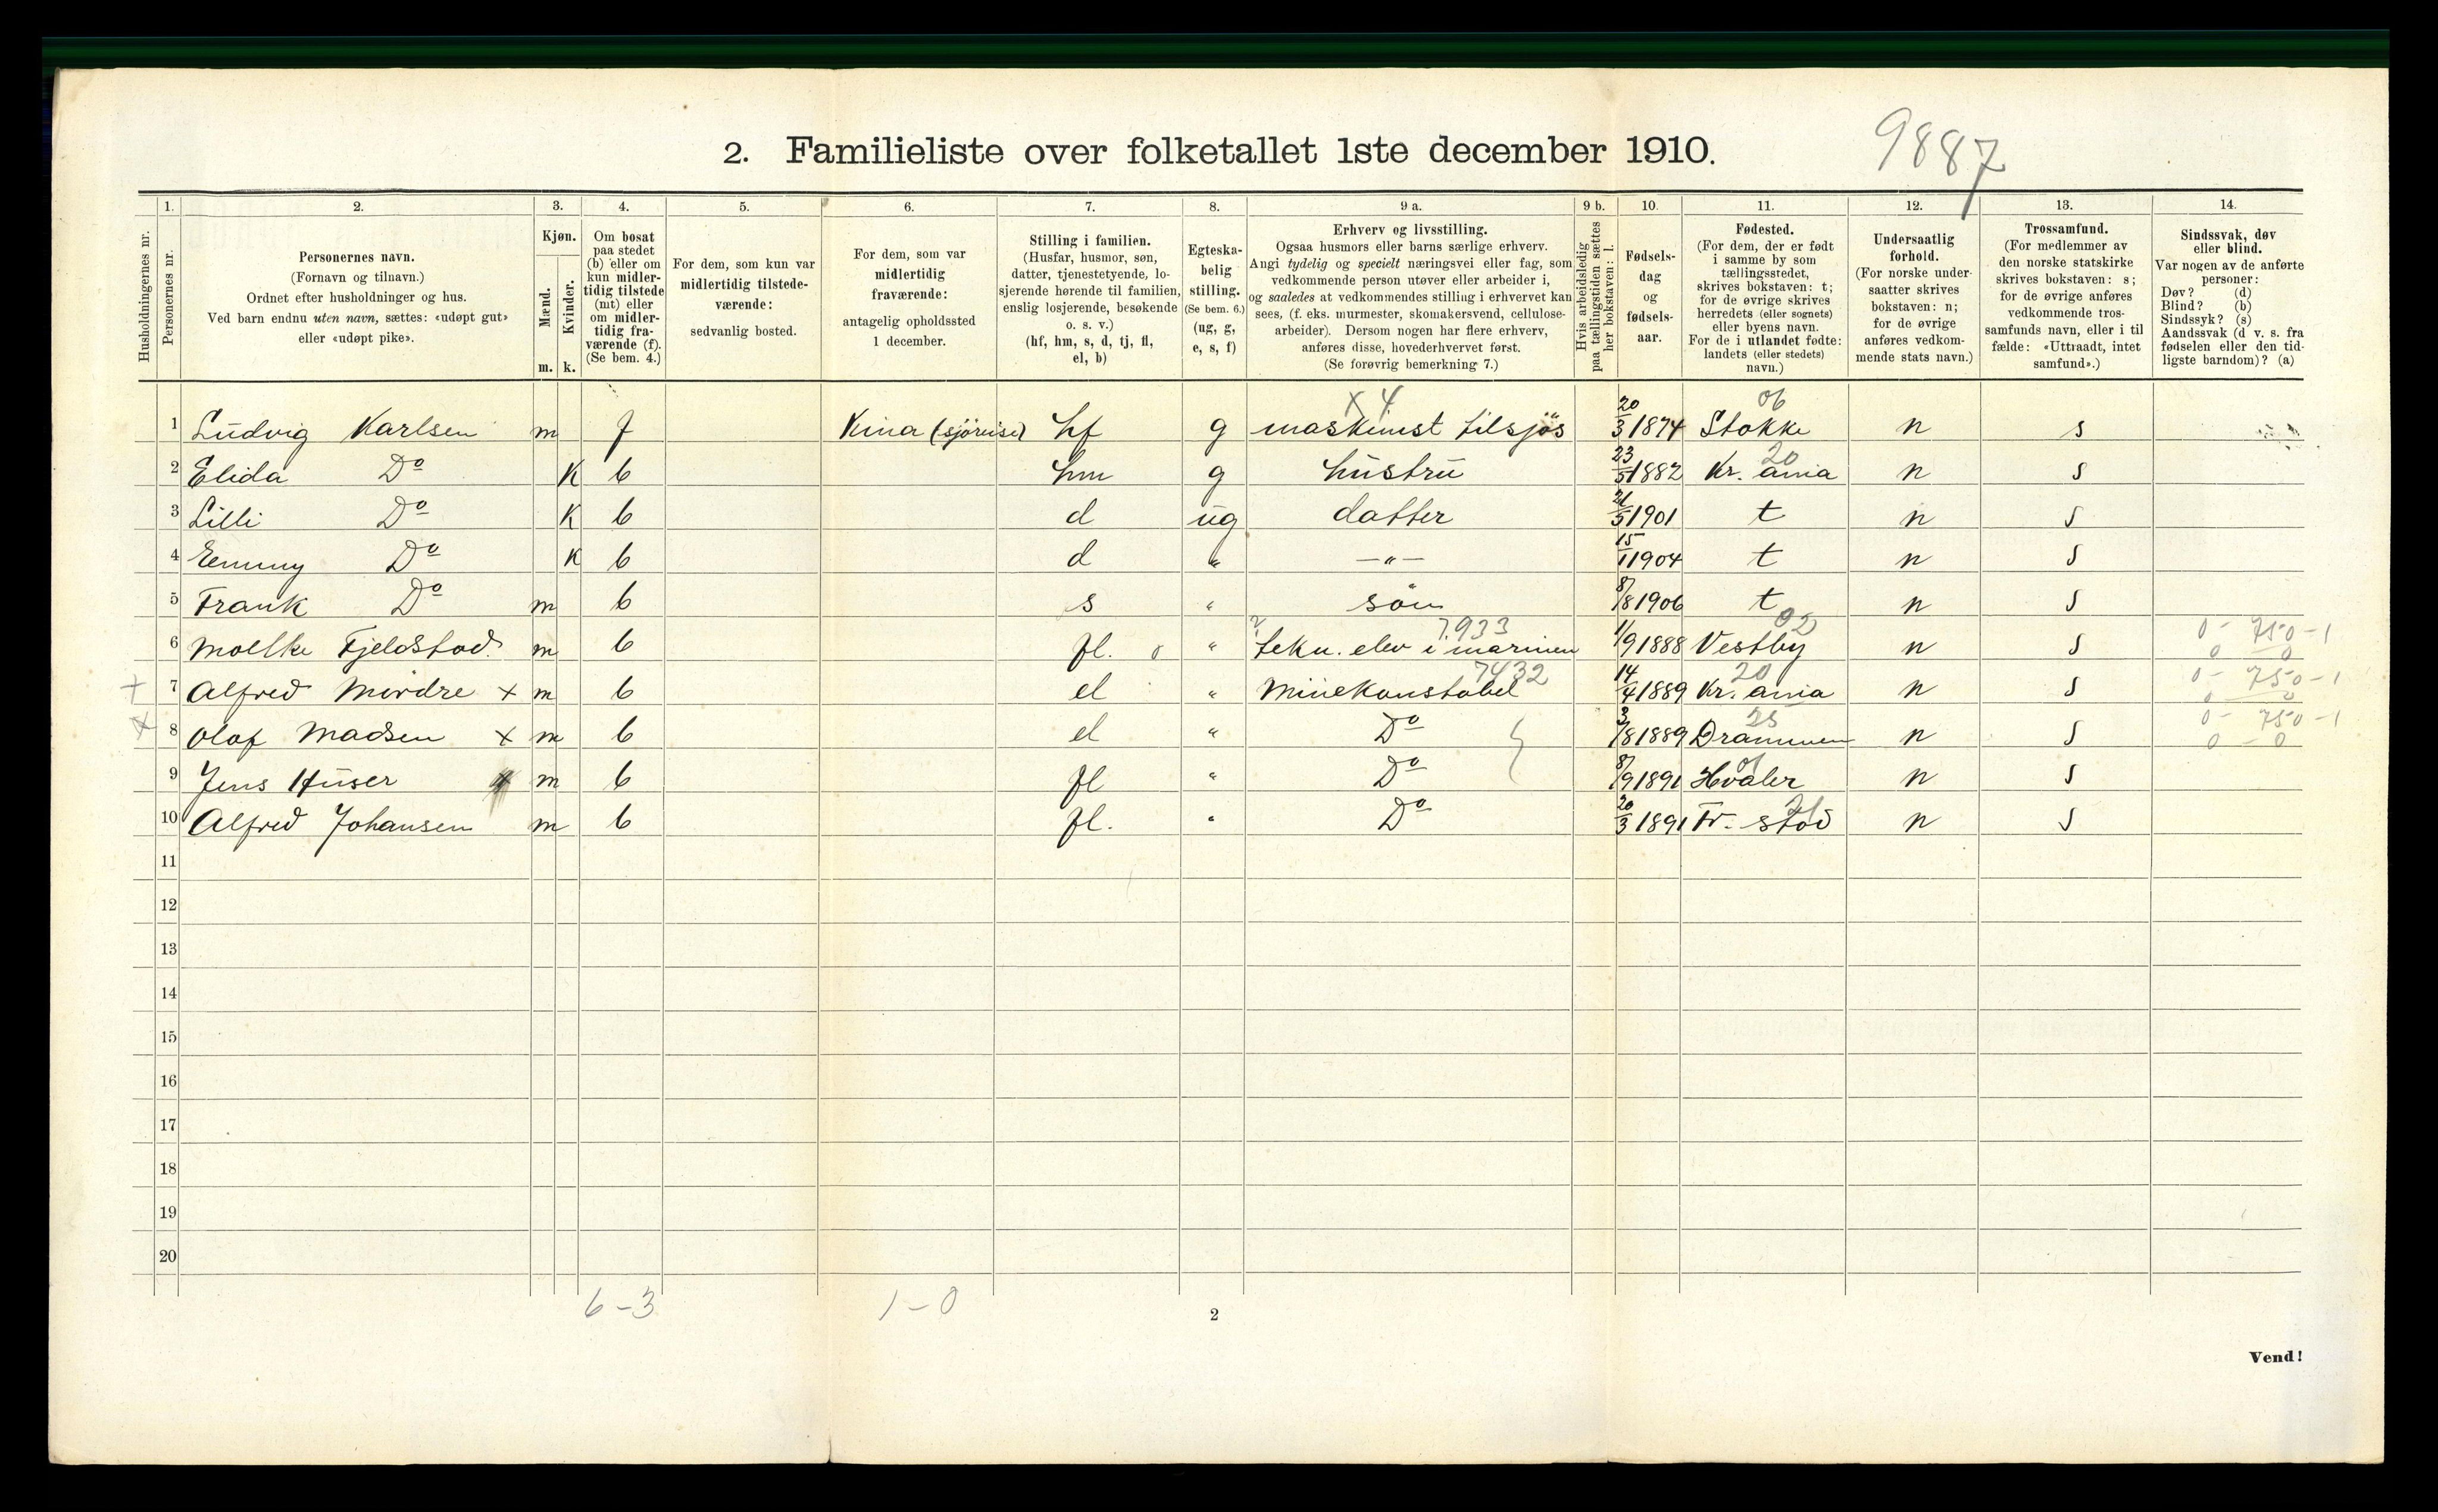 2. Familieliste over folketallet 1ste december 1910.
9887
Husholdningernes nr.
1.
Personernes nr.
2.
Personernes navn.
(Fornavn og tilnavn.)
Ordnet efter husholdninger og hus.
Ved barn endnu uten navn, sættes: «udøpt gut»
eller «udøpt pike».
3.
Kjøn.
Mænd.
Kvinder.
m. k.
4.
Om bosat
paa stedet
(b) eller om
kun midler-
tidig tilstede
(mt) eller
om midler-
tidig fra-
værende (f).
(Se bem. 4.)
5.
For dem, som kun var
midlertidig tilstede-
værende:
sedvanlig bosted.
6.
For dem, som var
midlertidig
fraværende:
antagelig opholdssted
1 december.
7.
Stilling i familien.
(Husfar, husmor, søn,
datter, tjenestetyende, lo-
sjerende hørende til familien,
enslig losjerende, besøkende
o. s. v.)
(hf, hm, s, d, tj, fl,
el, b)
8.
Egteska-
belig
stilling.
(Se bem. 6.)
(ug, g,
e, s, f)
9 a.
Erhverv og livsstilling.
Ogsaa husmors eller barns særlige erhverv.
Angi tydelig og specielt næringsvei eller fag, som
vedkommende person utøver eller arbeider i,
og saaledes at vedkommendes stilling i erhvervet kan
sees, (f. eks. murmester, skomakersvend, cellulose-
arbeider). Dersom nogen har flere erhverv,
anføres disse, hovederhvervet først.
(Se forøvrig bemerkning 7.)
9 b.
Hvis arbeidsledig
paa tællingstiden sættes
her bokstaven: l.
10.
Fødsels-
dag
og
fødsels-
aar.
11.
Fødested.
(For dem, der er født
i samme by som
tællingsstedet,
skrives bokstaven: t;
for de øvrige skrives
herredets (eller sognets)
eller byens navn.
For de i utlandet fødte:
landets (eller stedets)
navn.)
12.
Undersaatlig
forhold.
(For norske under-
saatter skrives
bokstaven: n;
for de øvrige
anføres vedkom-
mende stats navn.)
13.
Trossamfund.
(For medlemmer av
den norske statskirke
skrives bokstaven: s;
for de øvrige anføres
vedkommende tros-
samfunds navn, eller i til
fælde: «Uttraadt, intet
samfund».)
14.
Sindssvak, døv
eller blind.
Var nogen av de anførte
personer:
Døv? (d)
Blind? (b)
Sindssyk? (s)
Aandssvak (d. v. s. fra
fødselen eller den tid-
ligste barndom)? (a)
x 4 06
1 Ludvig Karlsen m f Kina (sjöreise) hf g maskinist tilsjös 20/3 1874 Stokke n s
20
2 Elida Do K b hm g hustru 23/5 1882 Kr.ania n s
3 Lilli Do K b d ug datter 21/5 1901 t n s
4 Emmy Do K b d " —"— 15/1 1904 t n s
5 Frank Do m b s " sön 8/8 1906 t n s
7.933 02 0 - 750 - 1
6 Moltke Fjeldstad. m b fl. o " tekn. elev i marinen 1/9 1888 Vestby n s 0 0
7432 20 0 - 750 - 1
+ 7 Alfred Mördre x m b el " Minekonstabel 14/4 1889 Kr.ania n s 0 0
25 0 - 750 - 1
x 8 Olaf Madsen x m b el " Do 3/8 1889 Drammen n s 0 - 0
01
9 Jens Huser x m b fl " Do 8/9 1891 Hvaler n s
21
10 Alfred Johansen m b fl. " Do 20/3 1891 Fr.stad n s
11
12
13
14
15
16
17
18
19
20
6 - 3 1 - 0
2
Vend!